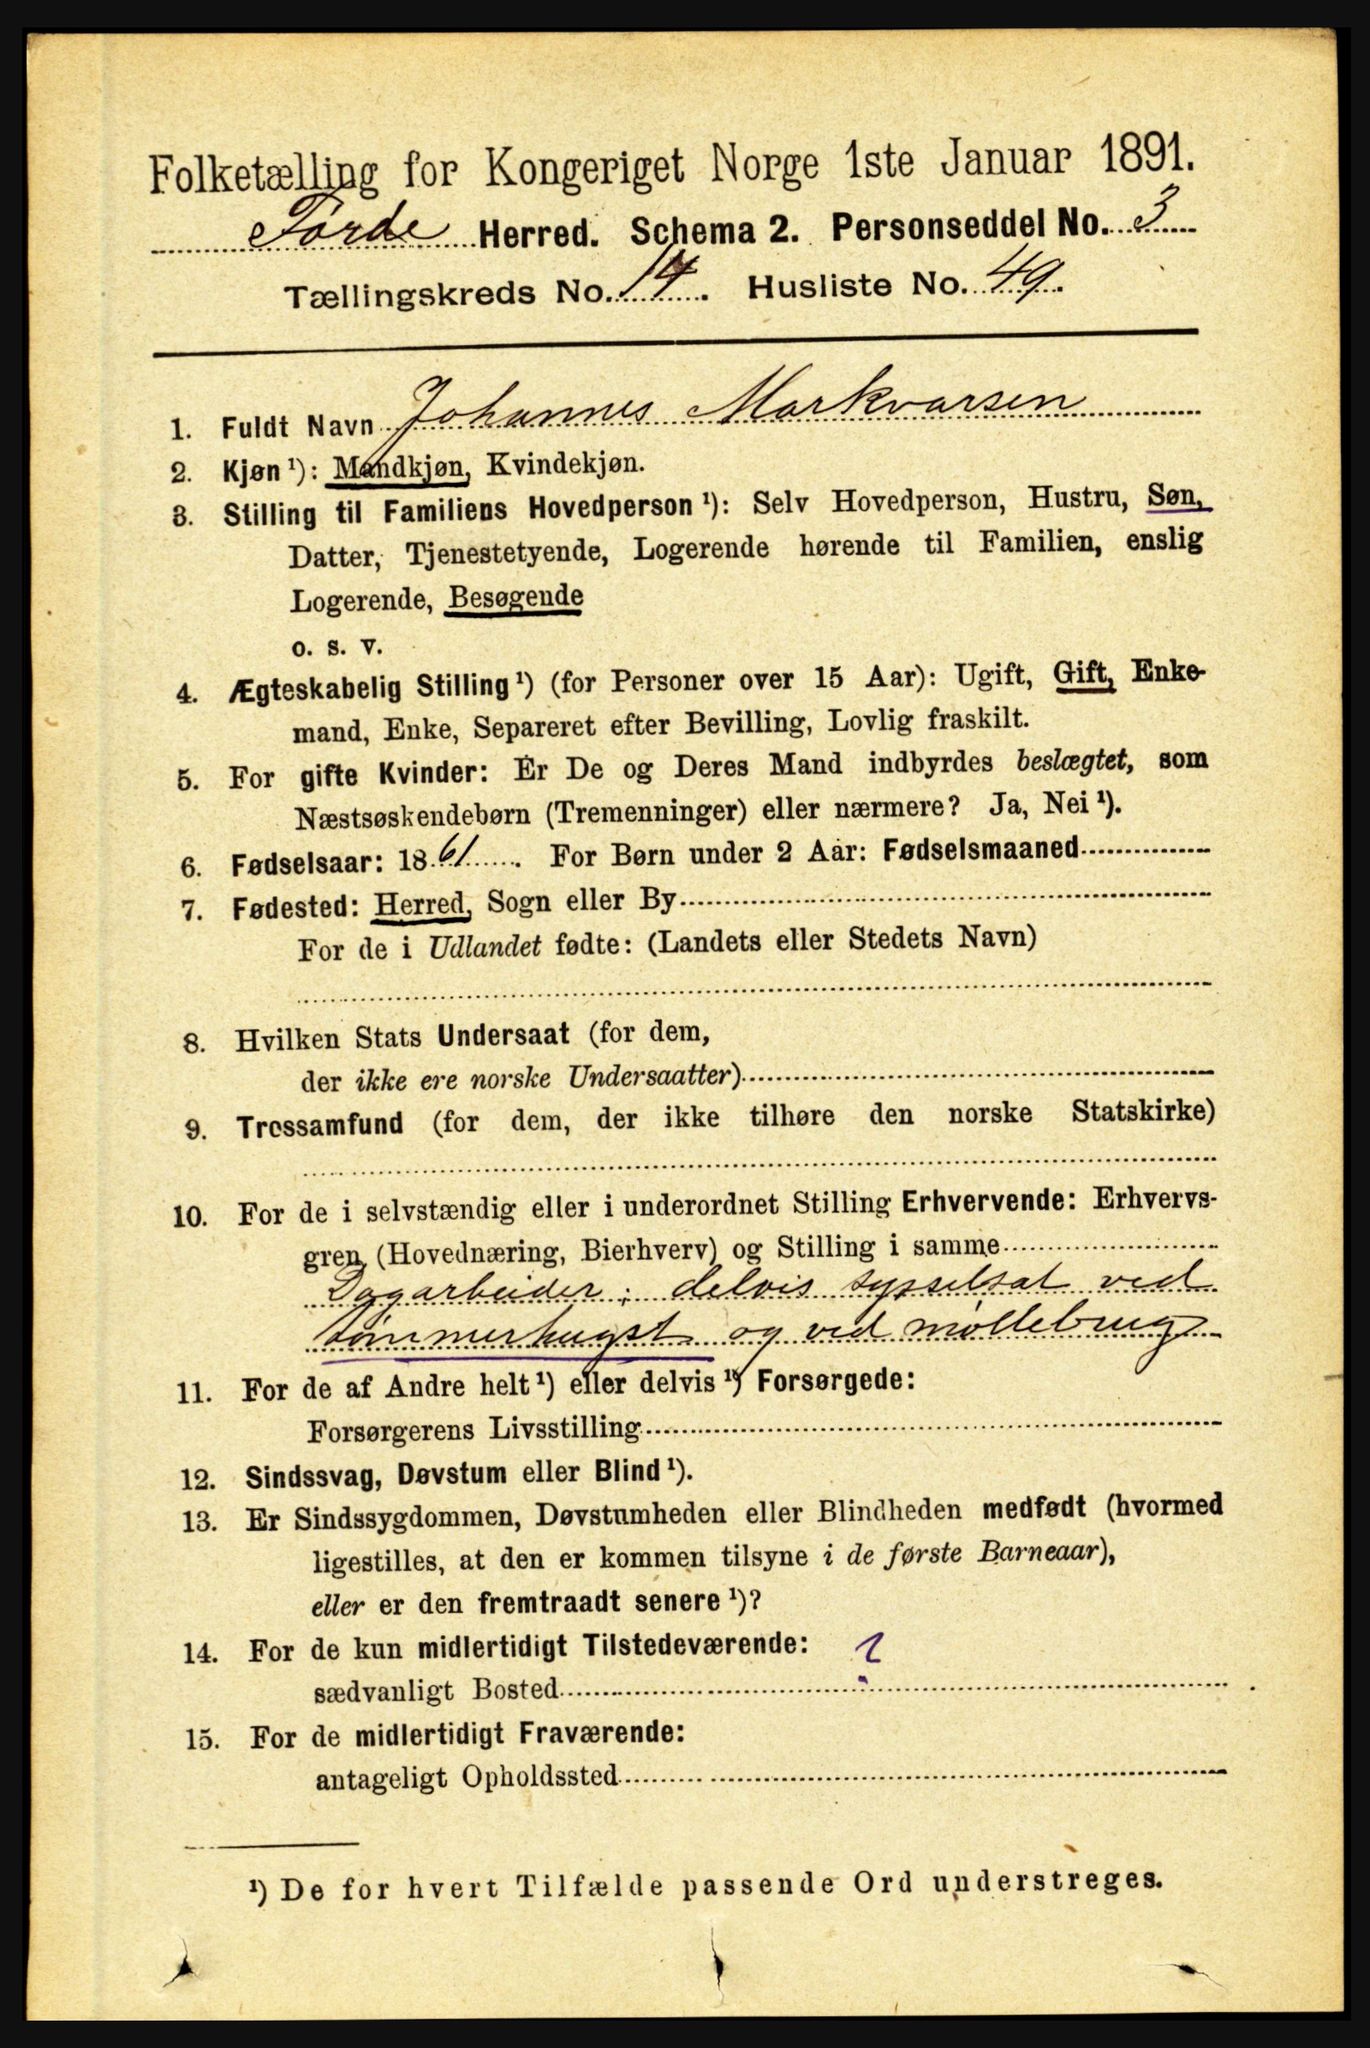 Folketælling for Kongeriget Norge 1ste Januar 1891.
Førde Herred. Schema 2. Personseddel No. 3
Tællingskreds No. 14. Husliste No. 49.
1. Fuldt Navn Johannes Markvarsen
2. Kjøn ¹): Mandkjøn, Kvindekjøn.
3. Stilling til Familiens Hovedperson ¹): Selv Hovedperson, Hustru, Søn,
Datter, Tjenestetyende, Logerende hørende til Familien, enslig
Logerende, Besøgende
o. s. v.
4. Ægteskabelig Stilling ¹) (for Personer over 15 Aar): Ugift, Gift, Enke-
mand, Enke, Separeret efter Bevilling, Lovlig fraskilt.
5. For gifte Kvinder: Er De og Deres Mand indbyrdes beslægtet, som
Næstsøskendebørn (Tremenninger) eller nærmere? Ja, Nei ¹).
6. Fødselsaar: 1861. For Børn under 2 Aar: Fødselsmaaned
7. Fødested: Herred, Sogn eller By
For de i Udlandet fødte: (Landets eller Stedets Navn)
8. Hvilken Stats Undersaat (for dem,
der ikke ere norske Undersaatter)
9. Trossamfund (for dem, der ikke tilhøre den norske Statskirke)
10. For de i selvstændig eller i underordnet Stilling Erhvervende: Erhvervs-
gren (Hovednæring, Bierhverv) og Stilling i samme
Dagarbeider; delvis sysselsat ved
tømmerhugst og ved møllebrug
11. For de af Andre helt ¹) eller delvis ¹) Forsørgede:
Forsørgerens Livsstilling
12. Sindssvag, Døvstum eller Blind ¹).
13. Er Sindssygdommen, Døvstumheden eller Blindheden medfødt (hvormed
ligestilles, at den er kommen tilsyne i de første Barneaar),
eller er den fremtraadt senere ¹)?
14. For de kun midlertidigt Tilstedeværende:
sædvanligt Bosted ?
15. For de midlertidigt Fraværende:
antageligt Opholdssted
¹) De for hvert Tilfælde passende Ord understreges.